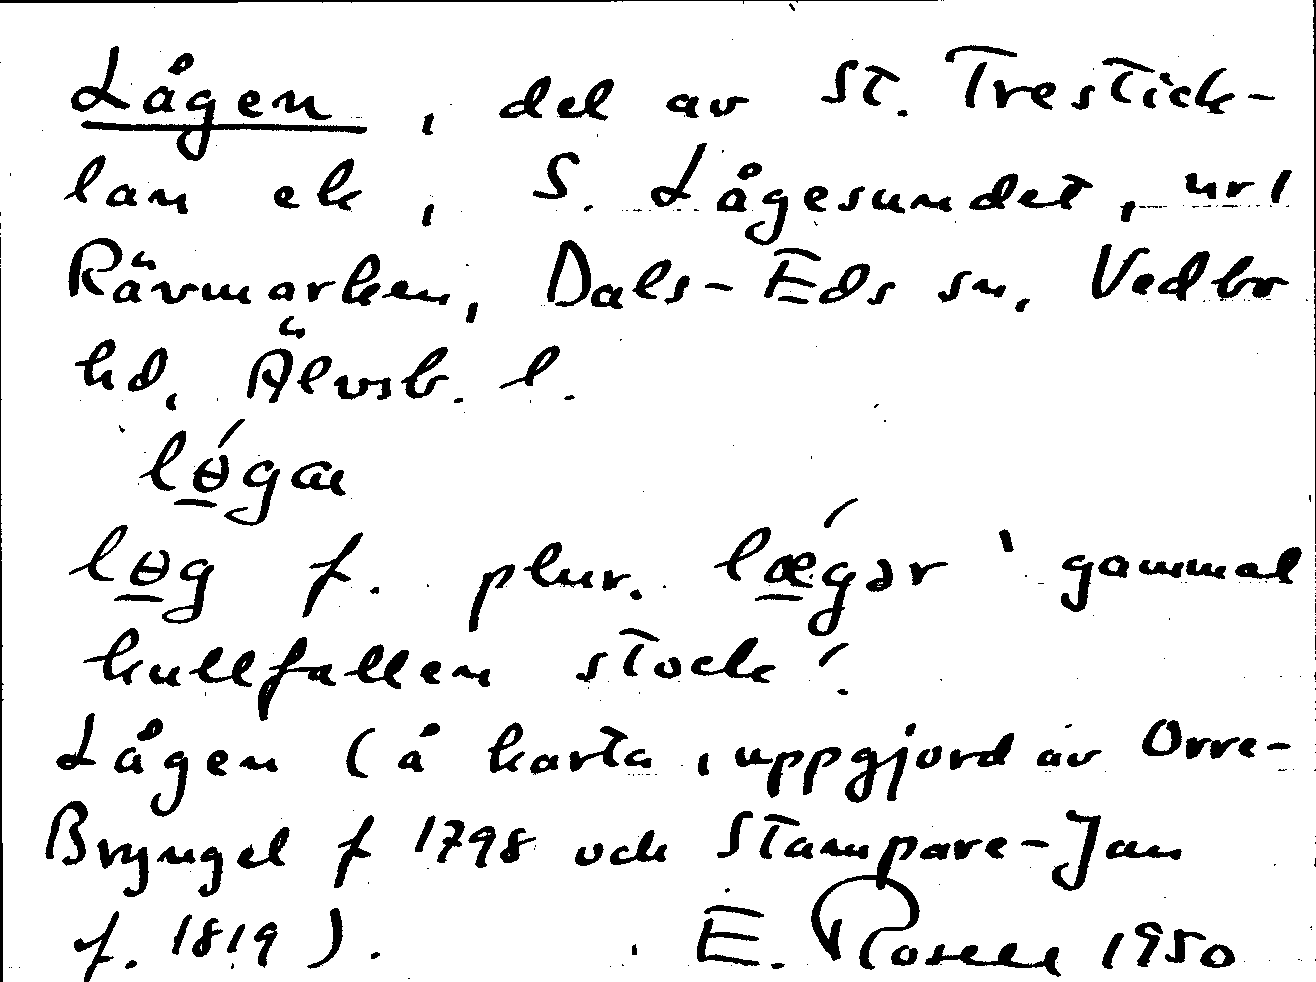 Lågen, del av St. Trestick-
lan ek, S. Lågesundet, ur 1
Rävmarken, Dals-Eds sn, Vedbo
hd, Älvsb. l.
lǿgan
løg f. plur. lǽgər 'gammal
kullfallen stock'.
Lågen (å karta, uppgjord av Orre-
Bryngel f 1798 och Stampare-Jan
f. 1819). E. Rosell 1950